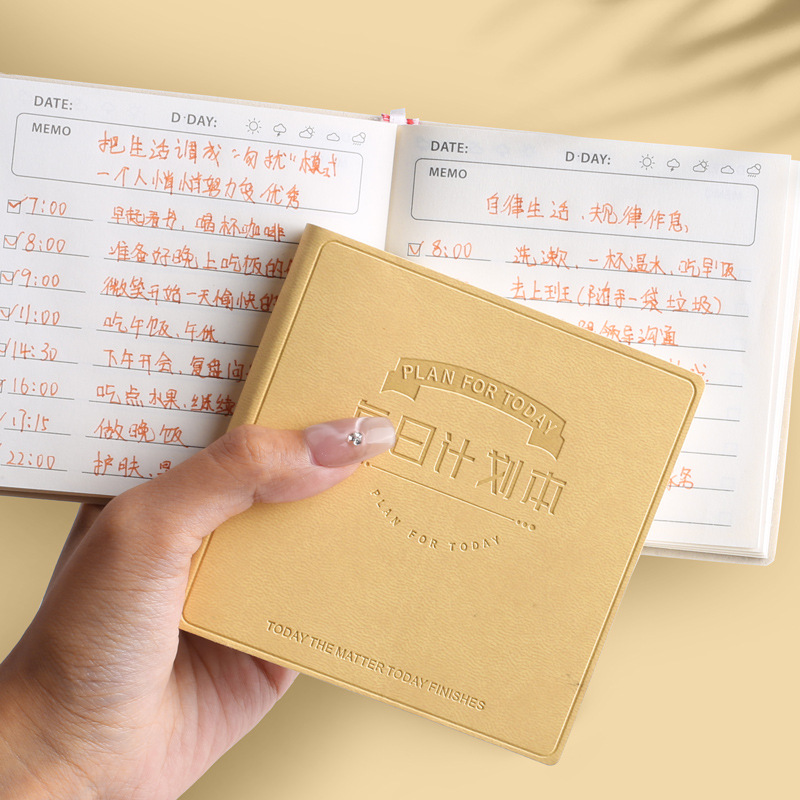 DATE:
D·DAY:
MEMO
把生活调成“勿扰”模式
一个人悄悄努力变优秀
7:00 早起看书、喝杯咖啡
8:00 准备好晚上吃饭的
9:00 微笑开始一天愉快的
11:00 吃午饭、午休
14:30 下午开会、复盘问
16:00 吃点水果、继续
17:15 做晚饭
22:00 护肤、早
DATE:
D·DAY:
MEMO
自律生活、规律作息
8:00 洗漱、一杯温水、吃早饭
去上班(随手一袋垃圾)
跟领导沟通
PLAN FOR TODAY
每日计划本
PLAN FOR TODAY
TODAY THE MATTER TODAY FINISHES